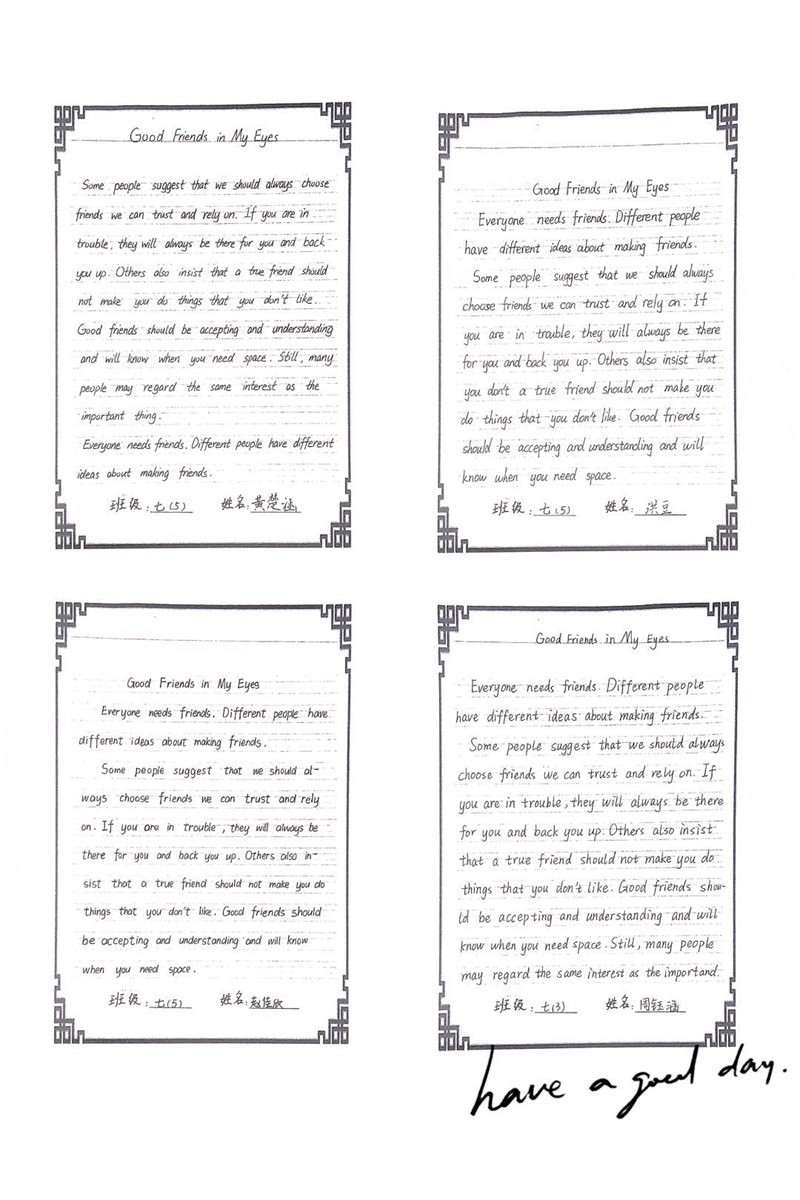 Good Friends in My Eyes
Some people suggest that we should always choose
friends we can trust and rely on. If you are in
trouble, they will always be there for you and back
you up. Others also insist that a true friend should
not make you do things that you don't like.
Good friends should be accepting and understanding
and will know when you need space. Still, many
people may regard the same interest as the
important thing.
Everyone needs friends. Different people have different
ideas about making friends.
班级: 七(5) 姓名: 黄楚涵
Good Friends in My Eyes
Everyone needs friends. Different people
have different ideas about making friends.
Some people suggest that we should always
choose friends we can trust and rely on. If
you are in trouble, they will always be there
for you and back you up. Others also insist that
you don't a true friend should not make you
do things that you don't like. Good friends
should be accepting and understanding and will
know when you need space.
班级: 七(5) 姓名: 洪豆
Good Friends in My Eyes
Everyone needs friends. Different people have
different ideas about making friends.
Some people suggest that we should al-
ways choose friends we can trust and rely
on. If you are in trouble, they will always be
there for you and back you up. Others also in-
sist that a true friend should not make you do
things that you don't like. Good friends should
be accepting and understanding and will know
when you need space.
班级: 七(5) 姓名: 赵佳欣
Good Friends in My Eyes
Everyone needs friends. Different people
have different ideas about making friends.
Some people suggest that we should always
choose friends we can trust and rely on. If
you are in trouble, they will always be there
for you and back you up. Others also insist
that a true friend should not make you do
things that you don't like. Good friends shou-
ld be accepting and understanding and will
know when you need space. Still, many people
may regard the same interest as the importand.
班级: 七(3) 姓名: 周钰涵
have a good day.